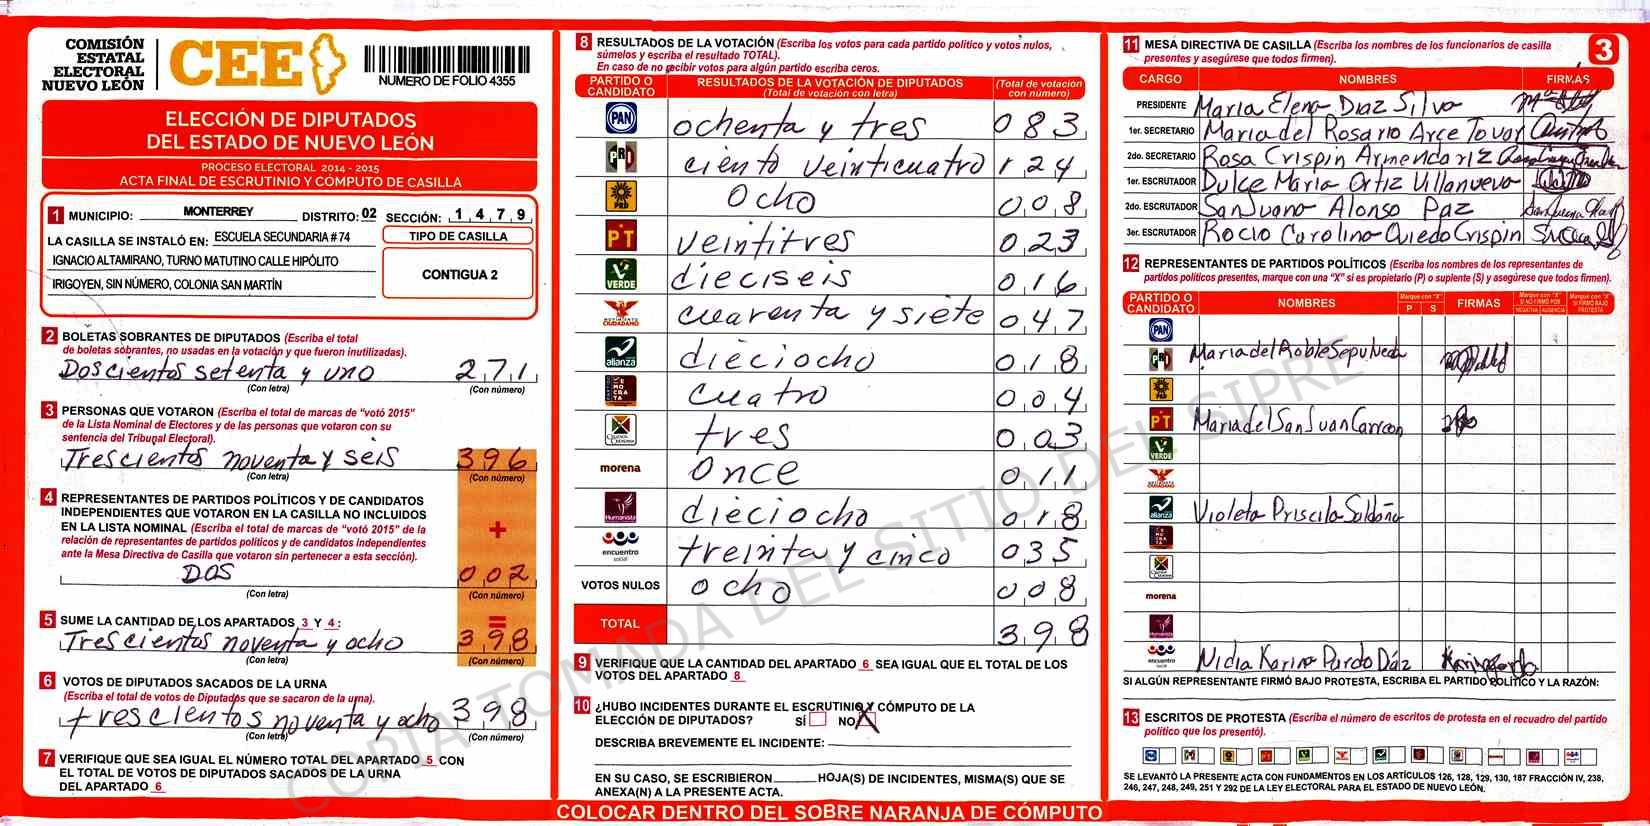 COMISIÓN
ESTATAL
ELECTORAL
NUEVO LEÓN
CEE
NUMERO DE FOLIO 4355
ELECCIÓN DE DIPUTADOS
DEL ESTADO DE NUEVO LEÓN
PROCESO ELECTORAL 2014 - 2015
ACTA FINAL DE ESCRUTINIO Y CÓMPUTO DE CASILLA
1 MUNICIPIO: MONTERREY DISTRITO: 02 SECCIÓN: 1479
LA CASILLA SE INSTALÓ EN: ESCUELA SECUNDARIA # 74
IGNACIO ALTAMIRANO, TURNO MATUTINO CALLE HIPÓLITO
IRIGOYEN, SIN NÚMERO, COLONIA SAN MARTÍN
TIPO DE CASILLA
CONTIGUA 2
2 BOLETAS SOBRANTES DE DIPUTADOS (Escriba el total
de boletas sobrantes, no usadas en la votación y que fueron inutilizadas).
Doscientos setenta y uno 271
(Con letra) (Con número)
3 PERSONAS QUE VOTARON (Escriba el total de marcas de "votó 2015"
de la Lista Nominal de Electores y de las personas que votaron con su
sentencia del Tribunal Electoral).
Trescientos noventa y seis 396
(Con letra) (Con número)
4 REPRESENTANTES DE PARTIDOS POLÍTICOS Y DE CANDIDATOS
INDEPENDIENTES QUE VOTARON EN LA CASILLA NO INCLUIDOS
EN LA LISTA NOMINAL (Escriba el total de marcas de "votó 2015" de la
relación de representantes de partidos políticos y de candidatos independientes
ante la Mesa Directiva de Casilla que votaron sin pertenecer a esta sección).
+
DOS 002
(Con letra) (Con número)
=
5 SUME LA CANTIDAD DE LOS APARTADOS 3 Y 4:
Trescientos noventa y ocho 398
(Con letra) (Con número)
6 VOTOS DE DIPUTADOS SACADOS DE LA URNA
(Escriba el total de votos de Diputados que se sacaron de la urna).
trescientos noventa y ocho 398
(Con letra) (Con número)
7 VERIFIQUE QUE SEA IGUAL EL NÚMERO TOTAL DEL APARTADO 5 CON
EL TOTAL DE VOTOS DE DIPUTADOS SACADOS DE LA URNA
DEL APARTADO 6
8 RESULTADOS DE LA VOTACIÓN (Escriba los votos para cada partido político y votos nulos,
súmelos y escriba el resultado TOTAL).
En caso de no recibir votos para algún partido escriba ceros.
PARTIDO O CANDIDATO RESULTADOS DE LA VOTACIÓN DE DIPUTADOS (Total de votación con letra) (Total de votación con número)
PAN ochenta y tres 083
PRI ciento veinticuatro 124
PRD Ocho 008
PT veintitres 023
VERDE dieciseis 016
MOVIMIENTO CIUDADANO cuarenta y siete 047
alianza dieciocho 018
DEMOCRATA cuatro 004
CRUZADA CIUDADANA tres 003
morena once 011
Humanista dieciocho 018
encuentro social treinta y cinco 035
VOTOS NULOS ocho 008
TOTAL 398
9 VERIFIQUE QUE LA CANTIDAD DEL APARTADO 6 SEA IGUAL QUE EL TOTAL DE LOS
VOTOS DEL APARTADO 8
10 ¿HUBO INCIDENTES DURANTE EL ESCRUTINIO Y CÓMPUTO DE LA
ELECCIÓN DE DIPUTADOS? SÍ NO X
DESCRIBA BREVEMENTE EL INCIDENTE:
EN SU CASO, SE ESCRIBIERON HOJA(S) DE INCIDENTES, MISMA(S) QUE SE
ANEXA(N) A LA PRESENTE ACTA.
COLOCAR DENTRO DEL SOBRE NARANJA DE CÓMPUTO
11 MESA DIRECTIVA DE CASILLA (Escriba los nombres de los funcionarios de casilla
presentes y asegúrese que todos firmen).
3
CARGO NOMBRES FIRMAS
PRESIDENTE Maria Elena Diaz Silva
1er. SECRETARIO Maria del Rosario Arce Tovar
2do. SECRETARIO Rosa Crispin Armendariz
1er. ESCRUTADOR Dulce Maria Ortiz Villanueva
2do. ESCRUTADOR SanJuano Alonso Paz
3er. ESCRUTADOR Rocio Carolina Oviedo Crispin
12 REPRESENTANTES DE PARTIDOS POLÍTICOS (Escriba los nombres de los representantes de
partidos políticos presentes, marque con una "X" si es propietario (P) o suplente (S) y asegúrese que todos firmen).
PARTIDO O CANDIDATO NOMBRES Marque con "X" P S FIRMAS Marque con "X" SI NO FIRMÓ POR NEGATIVA AUSENCIA Marque con "X" SI FIRMÓ BAJO PROTESTA
PAN
PRI Maria del Roble Sepulveda
PRD
PT Maria del San Juan Carreon
VERDE
alianza Violeta Priscila Saldaña
morena
Humanista
encuentro social Nidia Karina Pardo Dáz
SI ALGÚN REPRESENTANTE FIRMÓ BAJO PROTESTA, ESCRIBA EL PARTIDO POLÍTICO Y LA RAZÓN:
13 ESCRITOS DE PROTESTA (Escriba el número de escritos de protesta en el recuadro del partido
político que los presentó).
SE LEVANTÓ LA PRESENTE ACTA CON FUNDAMENTOS EN LOS ARTÍCULOS 126, 128, 129, 130, 187 FRACCIÓN IV, 238,
246, 247, 248, 249, 251 Y 292 DE LA LEY ELECTORAL PARA EL ESTADO DE NUEVO LEÓN.
COPIA TOMADA DEL SITIO DEL SIPRE